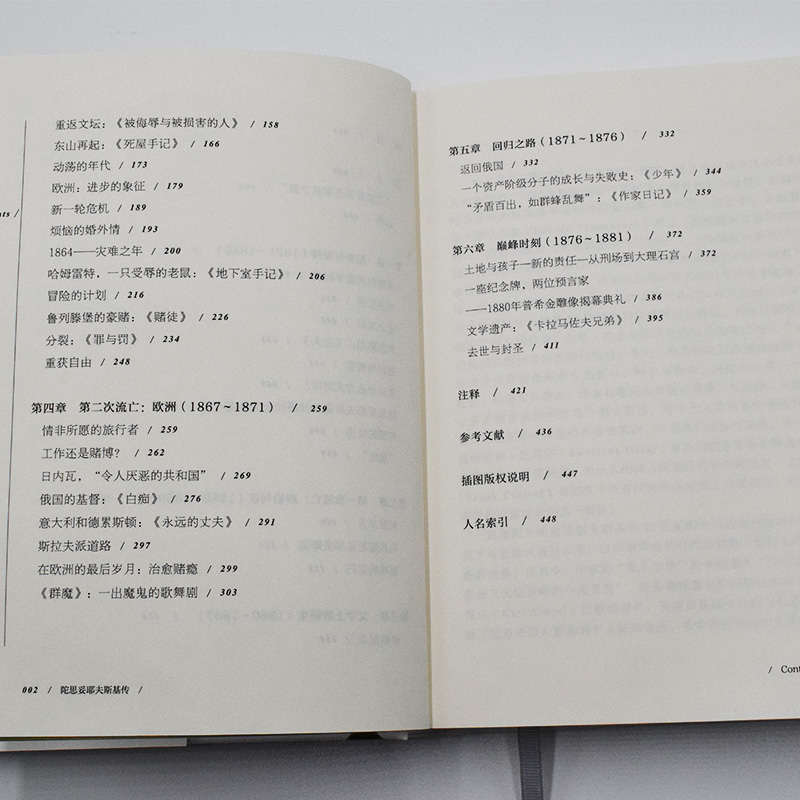 重返文坛：《被侮辱与被损害的人》 / 158
东山再起：《死屋手记》 / 166
动荡的年代 / 173
欧洲：进步的象征 / 179
新一轮危机 / 189
烦恼的婚外情 / 193
1864——灾难之年 / 200
哈姆雷特，一只受辱的老鼠：《地下室手记》 / 206
冒险的计划 / 216
鲁列滕堡的豪赌：《赌徒》 / 226
分裂：《罪与罚》 / 234
重获自由 / 248
第四章 第二次流亡：欧洲（1867~1871） / 259
情非所愿的旅行者 / 259
工作还是赌博？ / 262
日内瓦，“令人厌恶的共和国” / 269
俄国的基督：《白痴》 / 276
意大利和德累斯顿：《永远的丈夫》 / 291
斯拉夫派道路 / 297
在欧洲的最后岁月：治愈赌瘾 / 299
《群魔》：一出魔鬼的歌舞剧 / 303
002 / 陀思妥耶夫斯基传 /
第五章 回归之路（1871~1876） / 332
返回俄国 / 332
一个资产阶级分子的成长与失败史：《少年》 / 344
“矛盾百出，如群蜂乱舞”：《作家日记》 / 359
第六章 巅峰时刻（1876~1881） / 372
土地与孩子—新的责任—从刑场到大理石宫 / 372
一座纪念牌，两位预言家
——1880年普希金雕像揭幕典礼 / 386
文学遗产：《卡拉马佐夫兄弟》 / 395
去世与封圣 / 411
注释 / 421
参考文献 / 436
插图版权说明 / 447
人名索引 / 448
/ Cont